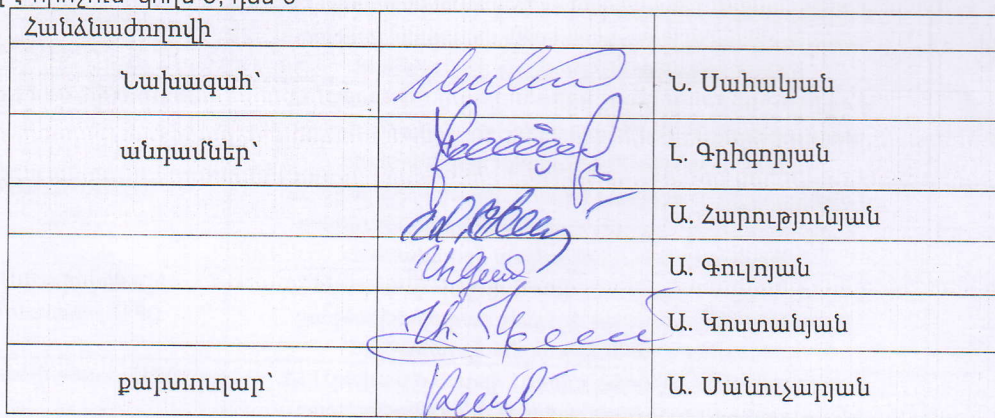 Հանձնաժողովի
Նախագահ՝ Ն. Սահակյան
անդամներ՝ Լ. Գրիգորյան
Ա. Հարությունյան
Ա. Գուլոյան
Ա. Կոստանյան
քարտուղար՝ Ա. Մանուչարյան